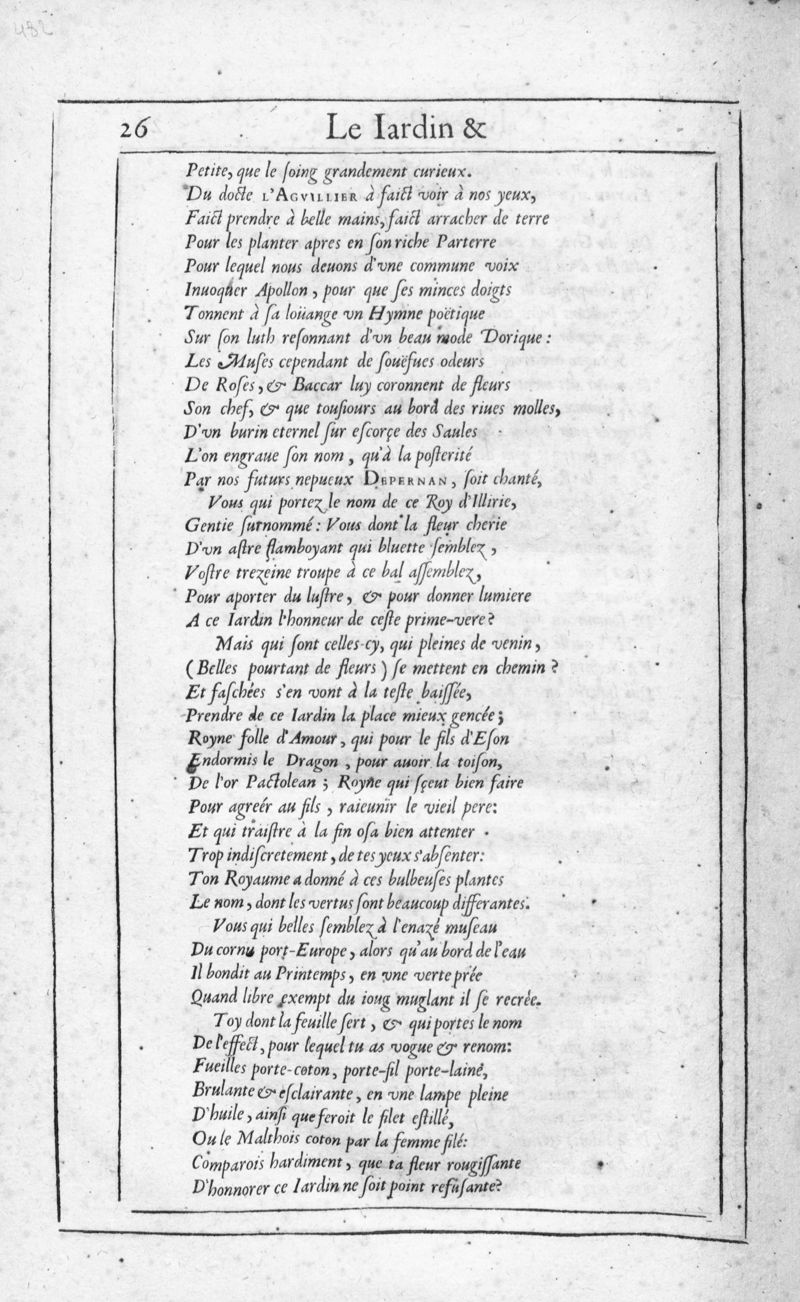 482
26 Le Iardin &
Petite, que le ſoing grandement curieux.
Du docte L'AGVILLIER à faict voir à nos yeux,
Faict prendre à belle mains, faict arracher de terre
Pour les planter apres en ſon riche Parterre
Pour lequel nous deuons d'vne commune voix
Inuoquer Apollon, pour que ſes minces doigts
Tonnent à ſa loüange vn Hymne poëtique
Sur ſon luth reſonnant d'vn beau mode Dorique:
Les Muſes cependant de ſouëfues odeurs
De Roſes, & Baccar luy coronnent de fleurs
Son chef, & que touſiours au bord des riues molles,
D'vn burin eternel ſur eſcorçe des Saules
L'on engraue ſon nom, qu'à la poſterité
Par nos futurs nepueux DEPERNAN, ſoit chanté,
Vous qui portez le nom de ce Roy d'Illirie,
Gentie ſurnommé: Vous dont la fleur cherie
D'vn aſtre flamboyant qui bluette ſemblez,
Voſtre trezeine troupe à ce bal aſſemblez,
Pour aporter du luſtre, & pour donner lumiere
A ce Iardin l'honneur de ceſte prime-vere?
Mais qui ſont celles-cy, qui pleines de venin,
(Belles pourtant de fleurs) ſe mettent en chemin?
Et faſchées s'en vont à la teſte baiſſée,
Prendre de ce Iardin la place mieux gencée;
Royne folle d'Amour, qui pour le fils d'Eſon
Endormis le Dragon, pour auoir la toiſon,
De l'or Pactolean; Royne qui ſçeut bien faire
Pour agreér au fils, raieunir le vieil pere:
Et qui traiſtre à la fin oſa bien attenter
Trop indiſcretement, de tes yeux s'abſenter:
Ton Royaume a donné à ces bulbeuſes plantes
Le nom, dont les vertus ſont beaucoup differantes.
Vous qui belles ſemblez à l'enazé muſeau
Du cornu port-Europe, alors qu'au bord de l'eau
Il bondit au Printemps, en vne verte prée
Quand libre exempt du ioug muglant il ſe recrée.
Toy dont la feuille ſert, & qui portes le nom
De l'effect, pour lequel tu as vogue & renom:
Fueilles porte-coton, porte-fil porte-lainé,
Brulante & eſclairante, en vne lampe pleine
D'huile, ainſi que feroit le filet eſtillé,
Ou le Malthois coton par la femme filé:
Comparois hardiment, que ta fleur rougiſſante
D'honnorer ce Iardin ne ſoit point refuſante?